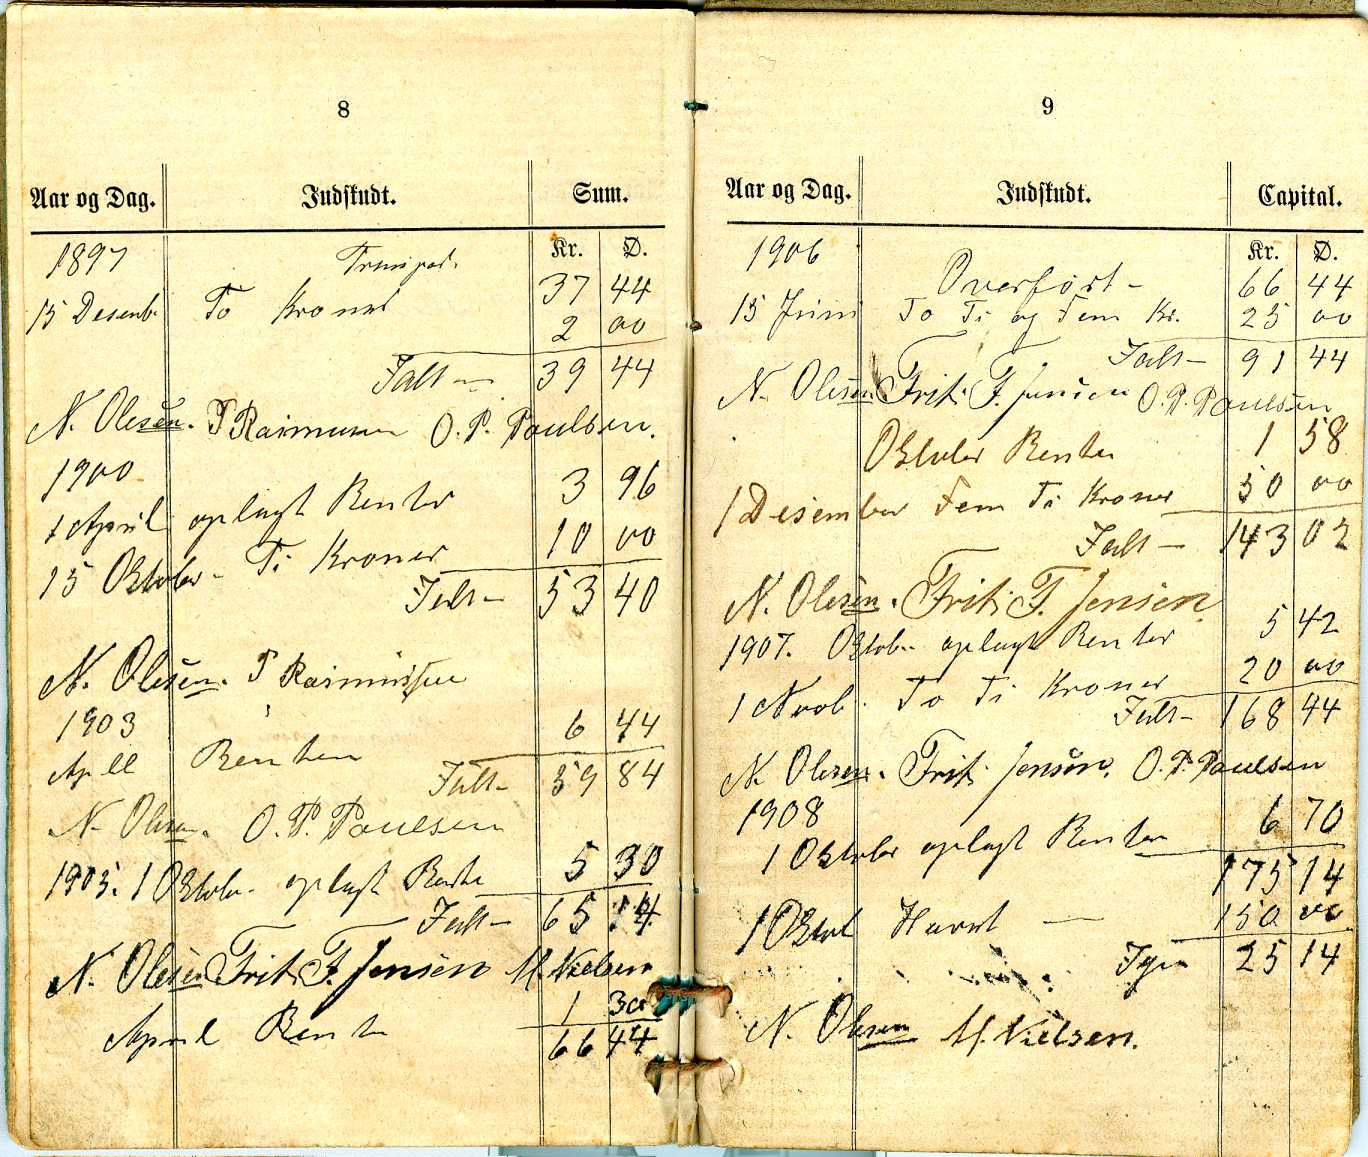 8
Aar og Dag. Indskudt. Sum.
Kr. D.
1897 Transport.
37 44
15 Desenb. To Kroner 2 00
Ialt — 39 44
N. Olesen. P Rasmussen O. P. Poulsen.
1900
1 April oplagt Renter 3 96
15 Oktober - Ti Kroner 10 00
Ialt — 53 40
N. Olesen. P Rasmussen
1903
Apll Renten 6 44
Ialt - 59 84
N. Olesen. O. P. Poulsen
1905. 1 Oktob. oplagt Rente 5 30
Ialt — 65 14
N. Olesen Frits F. Jensen M. Nielsen
April Rente 1 30
66 44
9
Aar og Dag. Indskudt. Capital.
Kr. D.
1906 Overført — 66 44
15 Juni To Ti og Fem Kr. 25 00
Ialt — 91 44
N. Olesen. Frits F. Jensen O. P. Poulsen
Oktober Renter 1 58
1 Desember Fem Ti Kroner 50 00
Ialt — 143 02
N. Olesen. Frits F. Jensen
1907. Oktob. oplagt Renter 5 42
1 Novb. To Ti Kroner 20 00
Ialt - 168 44
N. Olesen. Frits Jensen. O. P. Poulsen
1908
1 Oktober oplagt Renter 6 70
175 14
1 Oktob Hævet — 150 00
Igen 25 14
N. Olesen M. Nielsen.